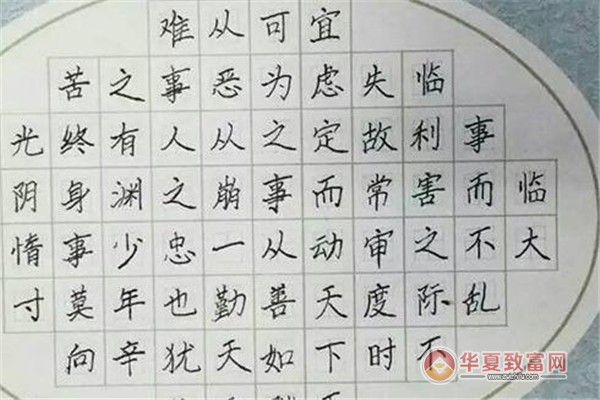 临大
事而不乱
临利害之际不
失故常审度时
宜虑定而动天下
可为之事从善如
从恶从崩一勤天
难事人之忠也犹
之有渊少年辛
苦终身事莫向
光阴惰寸
华夏致富网